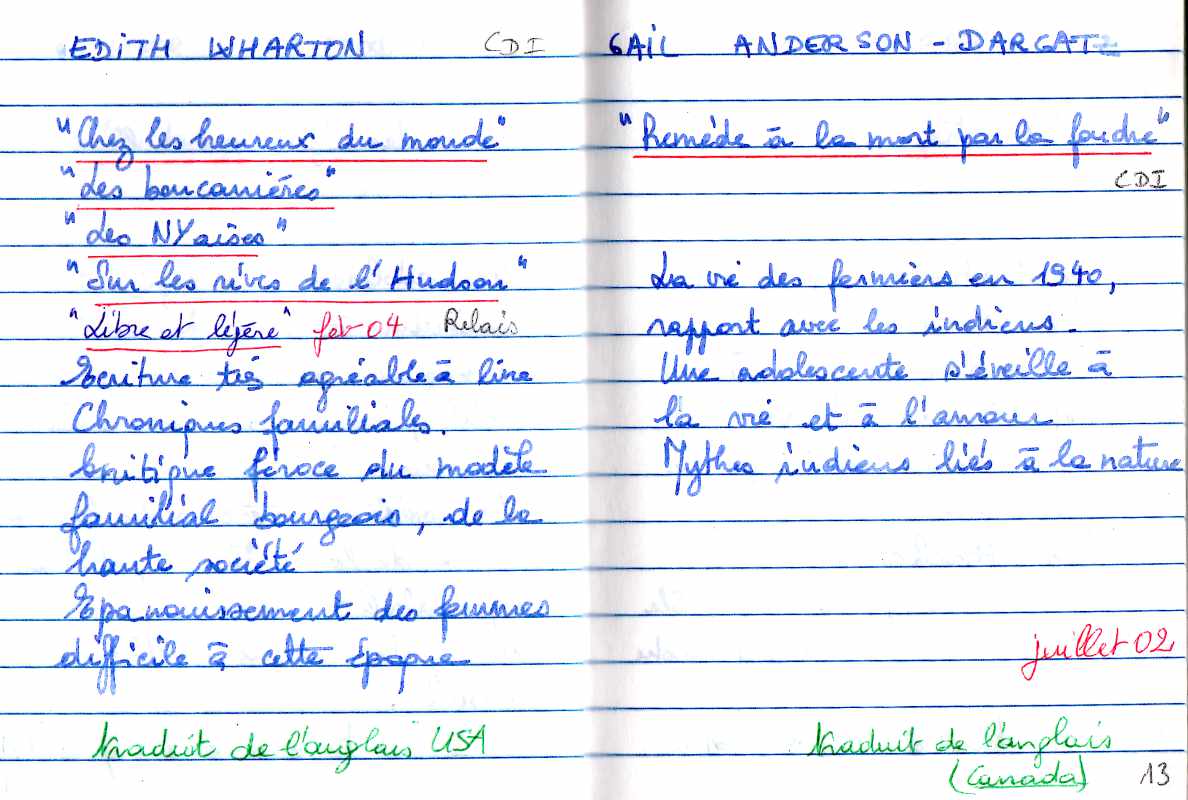 EDITH WHARTON CDI
"Chez les heureux du monde"
"Les boucanières"
"Les NYaises"
"Sur les rives de l'Hudson"
"Libre et légère" feb 04 Relais
Ecriture très agréable à lire
Chroniques familiales.
Critique féroce du modèle
familial bourgeois, de la
haute société
Epanouissement des femmes
difficile à cette époque
traduit de l'anglais USA
GAIL ANDERSON - DARGATZ
"Remède à la mort par la foudre"
CDI
La vie des fermiers en 1940,
rapport avec les indiens.
Une adolescente s'éveille à
la vie et à l'amour
Mythes indiens liés à la nature
juillet 02
traduit de l'anglais
(Canada) 13